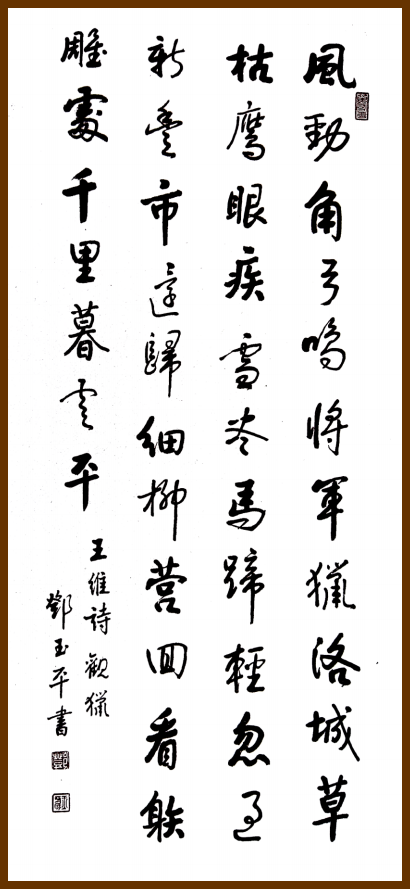 風勁角弓鳴將軍獵洛城草
枯鷹眼疾雪尽馬蹄輕忽過
新豐市還歸細柳营回看䠶
雕處千里暮雲平
王維詩觀獵
鄧玉平書